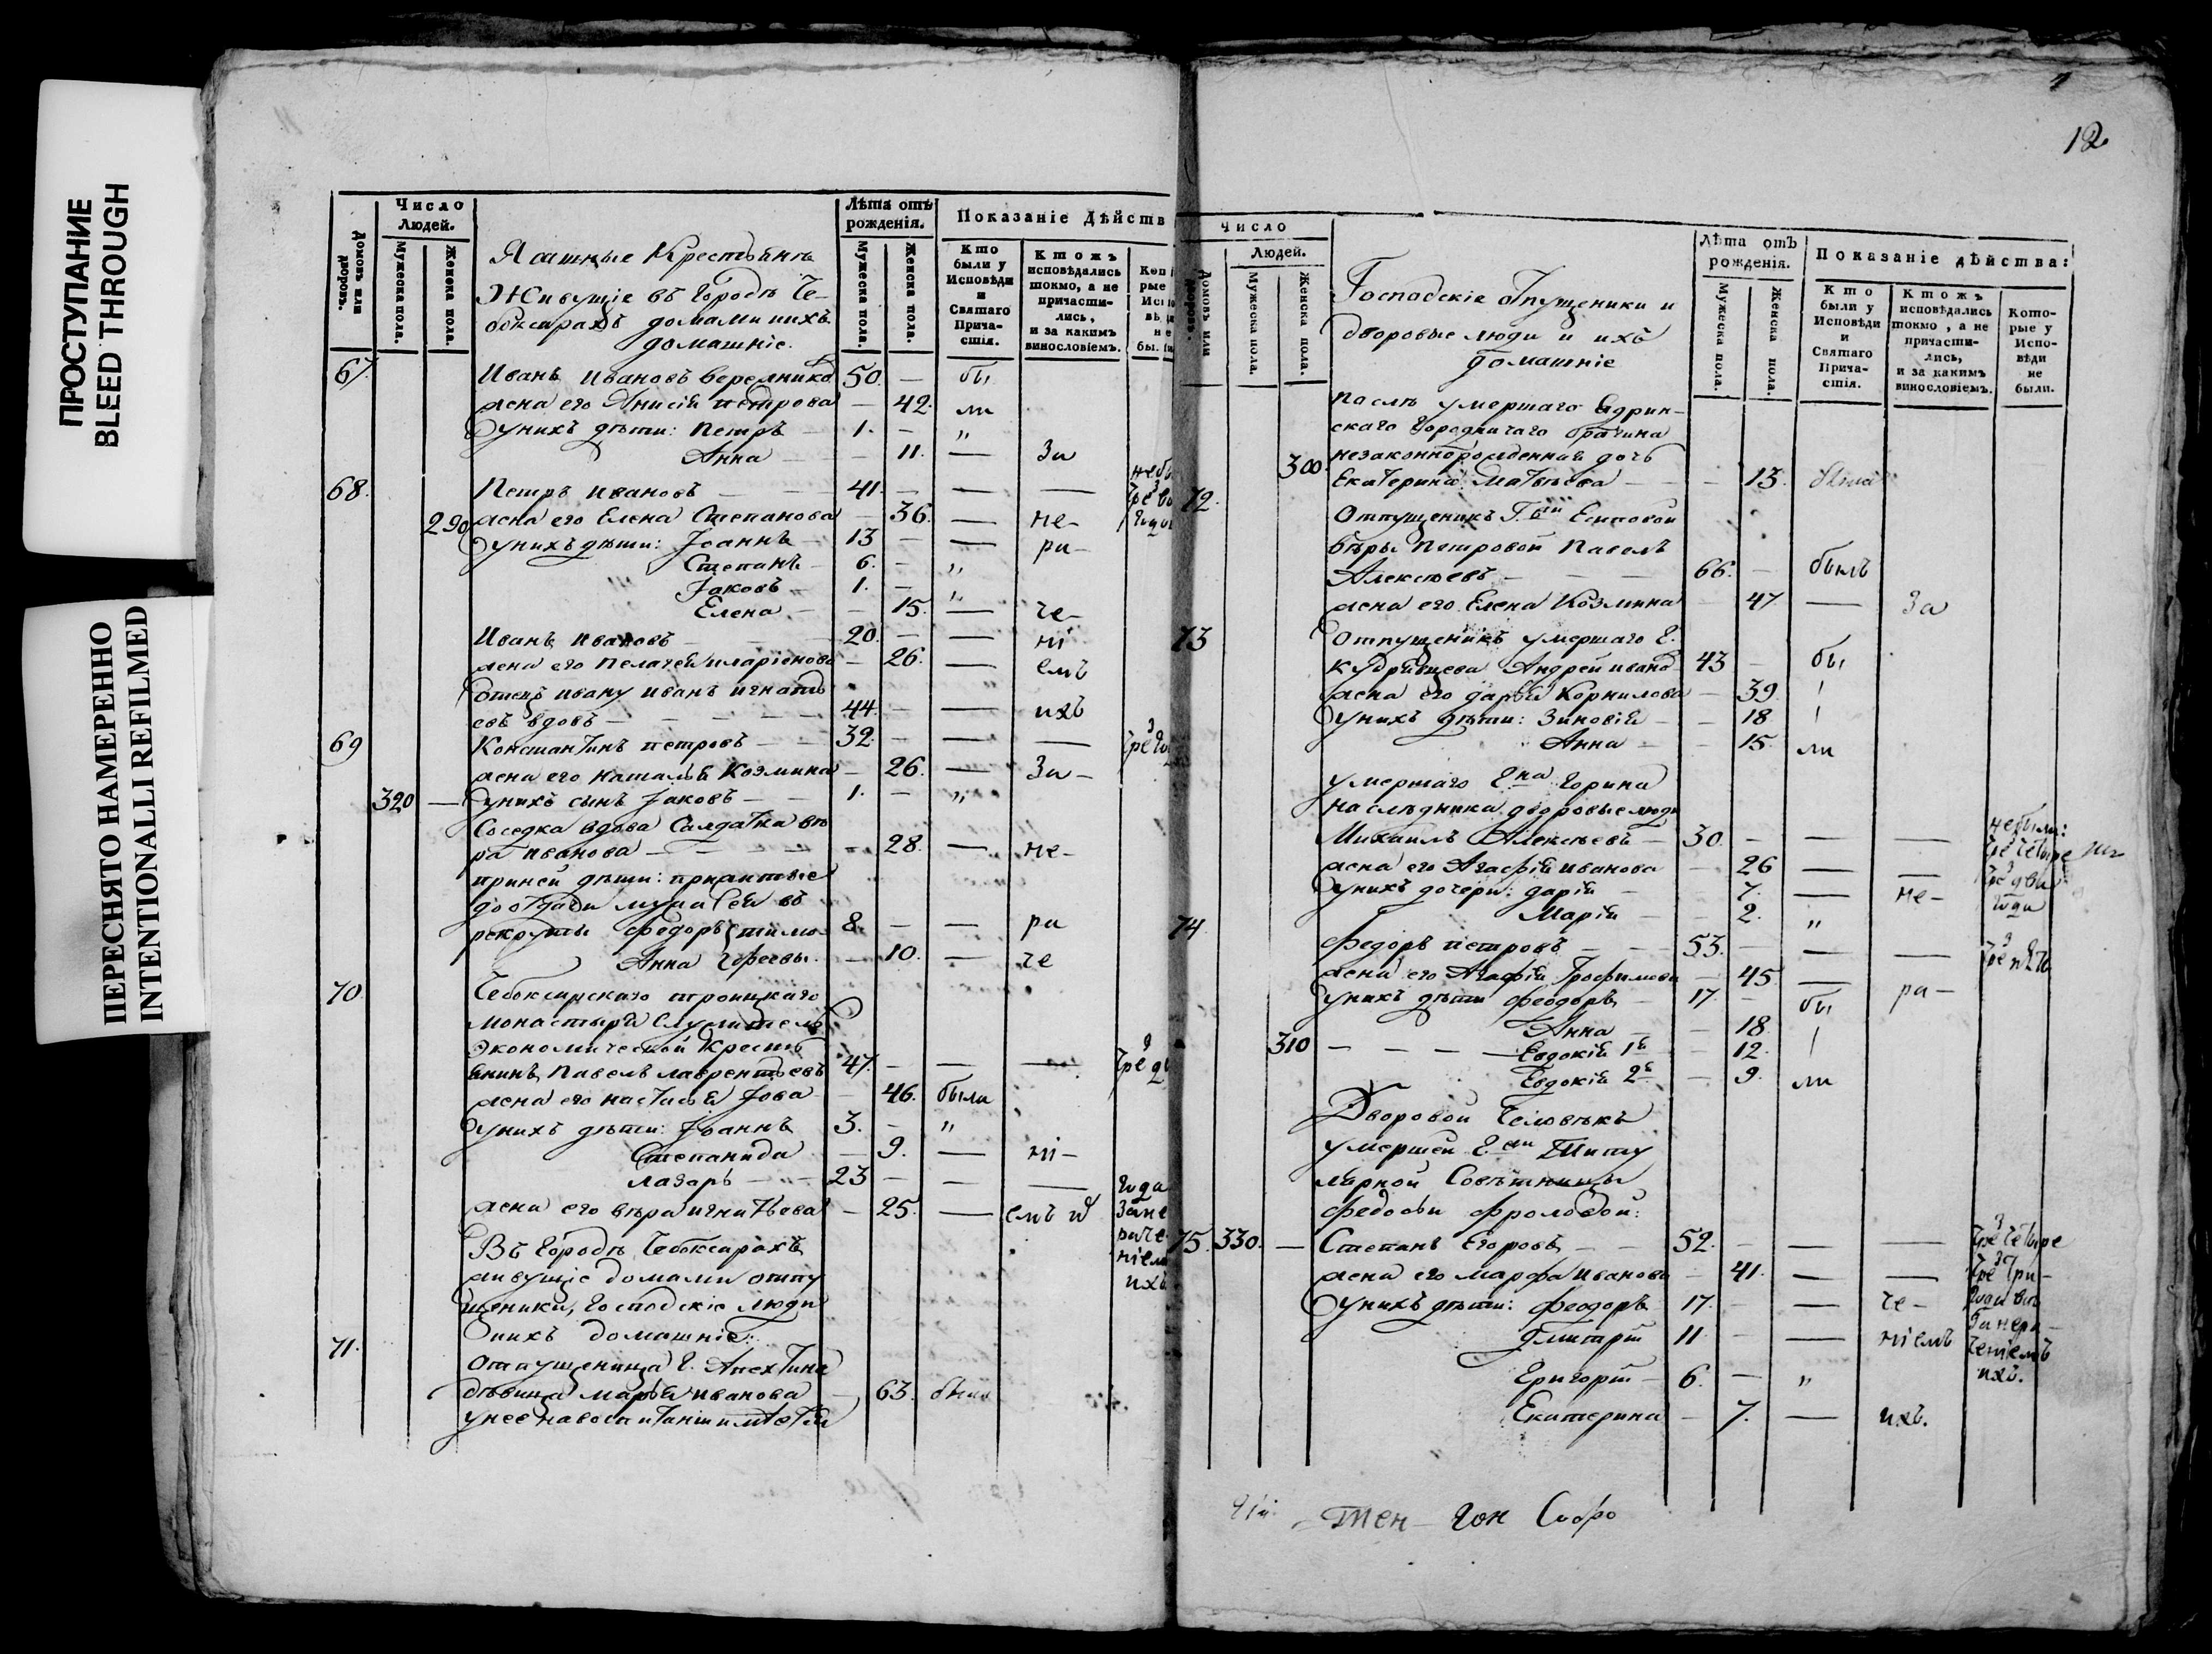 ПРОСТУПАНИЕ
BLEED THROUGH
ПЕРЕСНЯТО НАМЕРЕННО
INTENTIONALLI REFILMED
Домовъ или дворовъ.
Число Людей.
Мужеска пола.
Женска пола.
Ясашные Крестьяне
Живущіе въ городѣ Че-
боксарахъ домами и ихъ
домашніе.
Лѣта отъ рожденія.
Мужеска пола.
Женска пола.
Показаніе Дѣйств
Кто были у Исповѣди и Святаго Прича-стія.
Ктожъ исповѣдались токмо, а не причасти-лись, и за какимъ винословіемъ.
67. Иванъ Ивановъ 50. — бы
жена его Анисія Петрова — 42. ли
У нихъ дѣти: Петръ — 1. — „
Анна — — 11. — За
68. Петръ Ивановъ — 41. — — —
290 жена его Елена Степанова — 36. — не-
У нихъ дѣти: Іоаннъ — 13 — — ра-
Степанъ — 6. — „
Іаковъ — 1. — „
Елена — — 15. — че-
Иванъ Ивановъ — 20. — — ні
жена его Пелагея Иларіонова — 26. — емъ
отецъ Ивану Иванъ Игнать
евъ вдовъ — 44. — — ихъ
69 Константинъ Петровъ — 32. — — —
жена его Наталья Козмина — 26. — За-
320 — У нихъ сынъ Іаковъ — 1. — „
Соседка вдова Салдатка вѣ
ра Иванова — 28. — не-
при ней дѣти: прижитые
до отдачи мужа ея въ
рекруты Федоръ 8. — — ра
Анна — 10. — че
70 Чебоксарскаго троицкаго
монастыря Служитель
Экономической Кресть
янинъ Павелъ Лаврентьевъ 47. — — —
жена его Настасья Іова — 46. были
У нихъ дѣти: Іоаннъ 3. — „
Степанида — 9. — ні-
Лазарь — 23 — — — года
жена его Вѣра Игнатьева — 25. — емъ их За не
Въ городѣ Чебоксарахъ раче
живущіе домами отпу ніем
щеники, Господскіе люди ихъ
и ихъ домашніе:
71. Отпущеница Г. Апехтина
дѣвица Марья Иванова — 63. была
у нее на воспитаніи имѣется
12
Домовъ или дворовъ.
Число Людей.
Мужеска пола.
Женска пола.
Господскіе отпущеники и
дворовые люди и ихъ
домашніе
Лѣта отъ рожденія.
Мужеска пола.
Женска пола.
Показаніе дѣйства:
Кто были у Исповѣди и Святаго Прича-стія.
Ктожъ исповѣдались токмо, а не причасти-лись, и за какимъ винословіемъ.
Кото-рые у Испо-вѣди не были.
послѣ умершаго Ядрин-
скаго городничаго
300. незаконнорожденная дочь
Екатерина Матвѣева — — 13. была
72. Отпущеникъ Г. Есиповой
Вѣры Петровой Павелъ
Алексѣевъ — 66. — былъ
жена его Елена Козмина — 47 — За
73 Отпущеникъ умершаго Г.
Кудрявцева Андрей Ивано 43 — бы
жена его Дарья Корнилова — 39.
У нихъ дѣти: Зиновія — — 18
Анна — — 15. ли
умершаго Г-на Горина
наслѣдника дворовые люди
Михаилъ Алексѣевъ — 30. — — — не были: чрез четыре
жена его Агафія Иванова — 26 — — чрез два
У нихъ дочери: Дарія — — 7. — не- года
Марія — — 2. „
74. Федоръ Петровъ — 53. — — —
жена его Агафія Трофимова — 45. — ра-
У нихъ дѣти Феодоръ — 17 — бы
Анна — — 18.
310 — Евдокія 1я — 12.
Евдокія 2я — 9. ли
Дворовой Человѣкъ
умершей Г-жи Титу
лярной Совѣтницы
Федосьи Фроловой:
75. 330. — Степанъ Егоровъ — 52. — — — чрез четыре
жена его Марфа Иванова — 41. — — чрез три-
У нихъ дѣти: Феодоръ 17. — — че- года
Дмитрій 11 — — ніемъ За нера-ченіемъ
Григорій — 6. — „ ихъ.
Екатерина — 7. — ихъ.